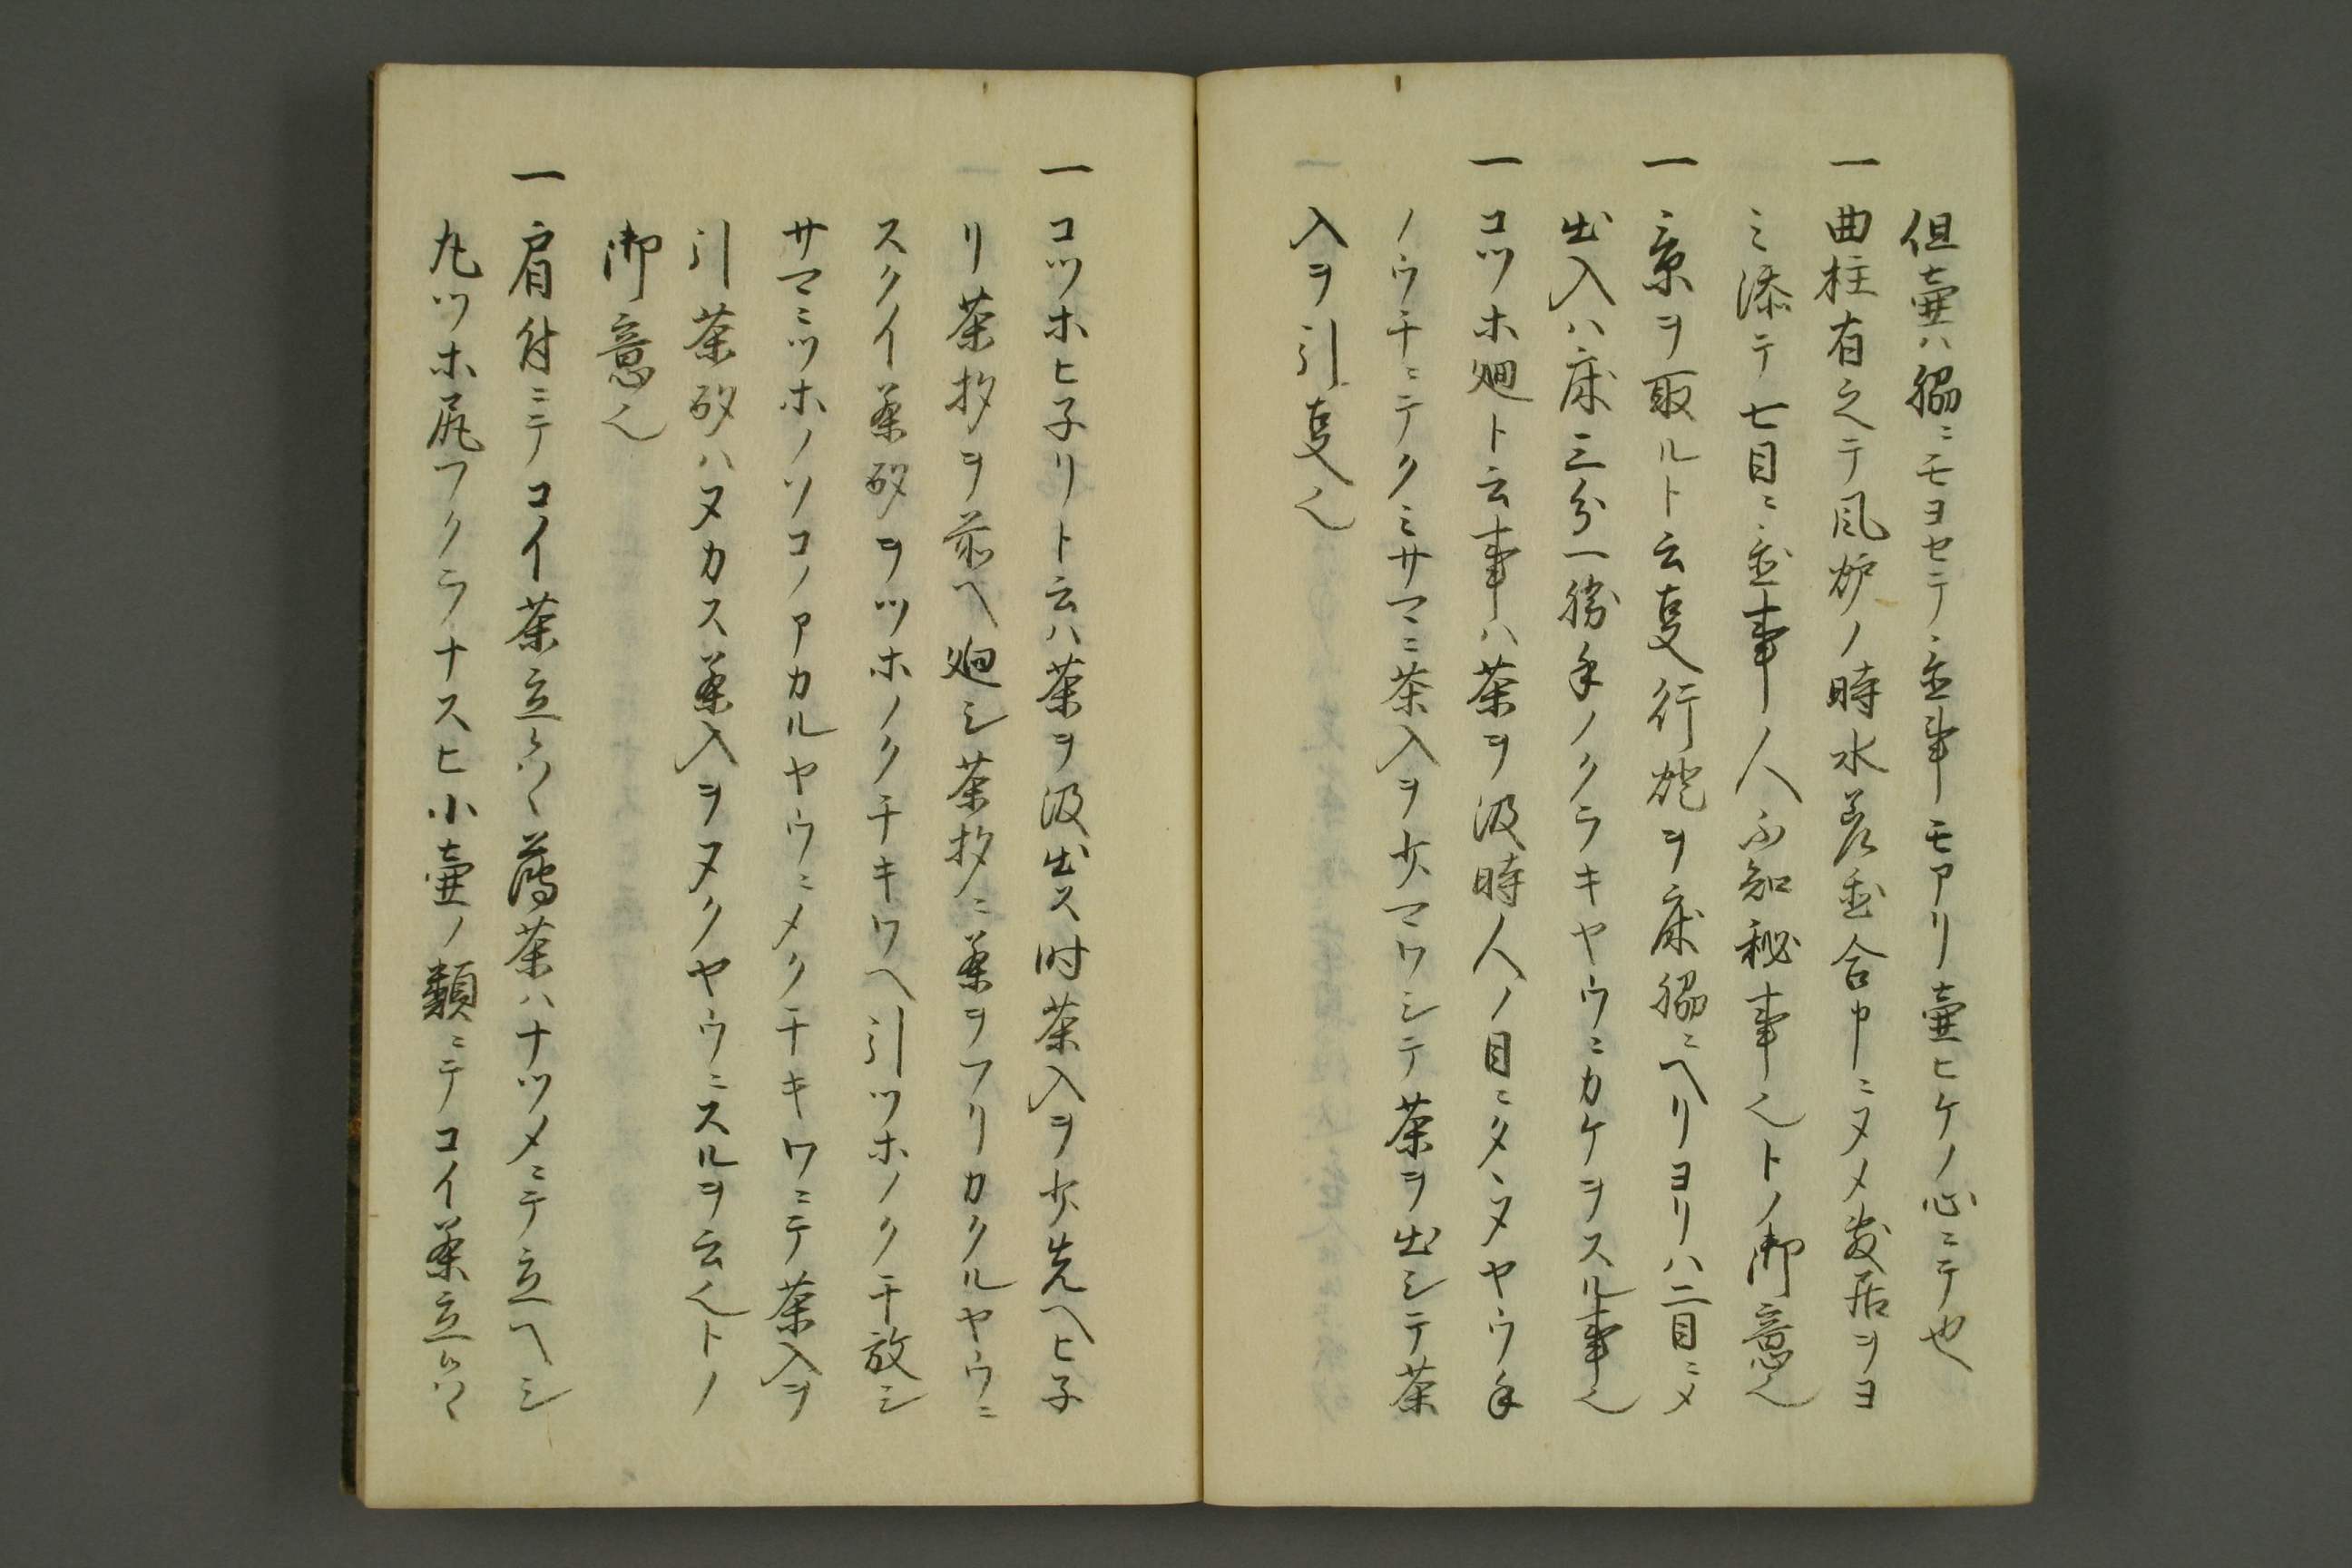 但壷ハ脇ニモヨセテ置事モアリ壷ヒケノ心ニテ也
一曲柱有之テ風炉ノ時水差置合中ニヌメ敷居ヲヨ
ミ添テ七目ニ置事人不知秘事也トノ御意也
一京ヲ取ルト云叓行灯ヲ床脇ニヘリヨリハ二目ニメ
出入ハ床三分一勝手ノクラキヤウニカケヲスル事也
一コツホ廻ト云事ハ茶ヲ汲時人ノ目ニタヽヌヤウ手
ノウチニテクミサマニ茶入ヲ少マワシテ茶ヲ出シテ茶
入ヲ引叓也
一コツホヒ子リト云ハ茶ヲ汲出ス時茶入ヲ少先ヘヒ子
リ茶杓ヲ前ヘ廻シ茶杓ニ茶ヲフリカクルヤウニ
スクイ茶杓ヲツホノクチキワヘ引ツホノクチ放シ
サマニツホノソコノアカルヤウニメクチキワニテ茶入ヲ
引茶杓ハヌカス茶入ヲヌクヤウニスルヲ云也トノ
御意也
一肩付ニテコイ茶立ハ薄茶ハナツメニテ立ヘシ
丸ツホ尻フクラナスヒ小壷ノ類ニテコイ茶立ハ